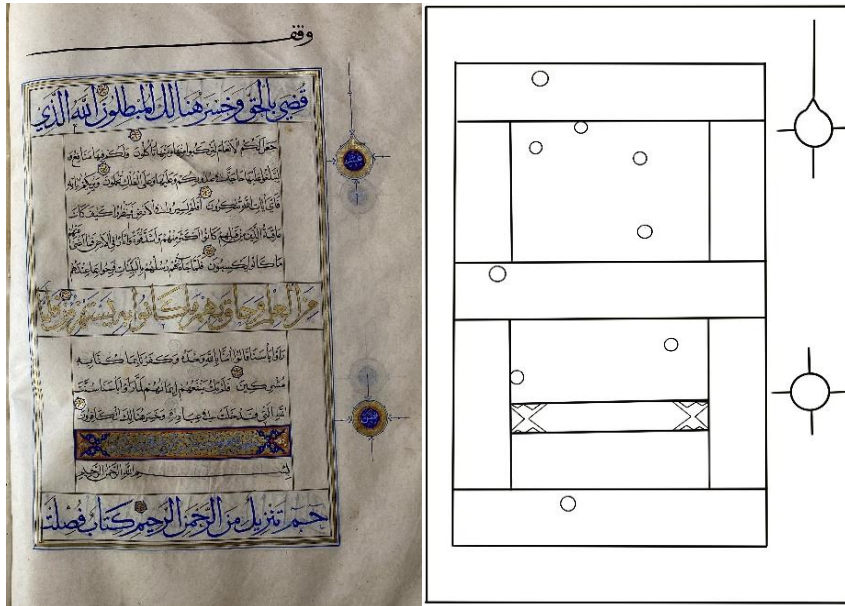 وقف
قضي بالحق وخسر هنالك المبطلون الله الذي
جعل لكم الأنعام لتركبوا منها ومنها تأكلون ولكم فيها منافع و
لتبلغوا عليها حاجة في صدوركم وعليها وعلى الفلك تحملون ويريكم آياته
فأي آيات الله تنكرون أفلم يسيروا في الأرض فينظروا كيف كان
عاقبة الذين من قبلهم كانوا أكثر منهم وأشد قوة وآثارا في الأرض فما أغنى عنهم
ما كانوا يكسبون فلما جاءتهم رسلهم بالبينات فرحوا بما عندهم
من العلم وحاق بهم ما كانوا به يستهزؤن فلما
رأوا بأسنا قالوا آمنا بالله وحده وكفرنا بما كنا به
مشركين فلم يك ينفعهم إيمانهم لما رأوا بأسنا سنت
الله التي قد خلت في عباده وخسر هنالك الكافرون
بسم الله الرحمن الرحيم
حم تنزيل من الرحمن الرحيم كتاب فصلت